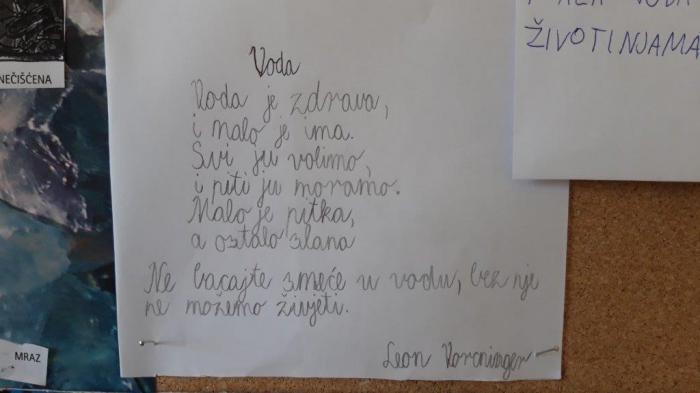 NEČIŠĆENA
MRAZ
Voda
Voda je zdrava,
i malo je ima.
Svi ju volimo,
i piti ju moramo.
Malo je pitka,
a ostalo slana
Ne bacajte smeće u vodu, bez nje
ne možemo živjeti.
Leon Vorcninger
VODA
ŽIVOTINJAMA